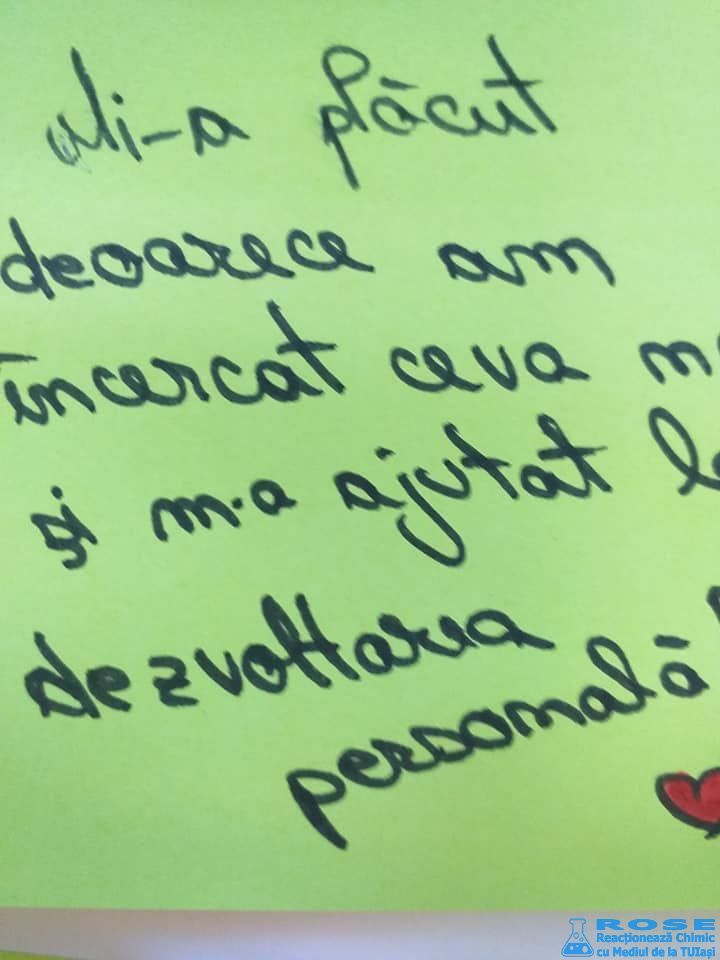 Mi-a plăcut
deoarece am
încercat ceva
și m-a ajutat
dezvoltarea
personală
ROSE
Reacționează Chimic
cu Mediul de la TUIași